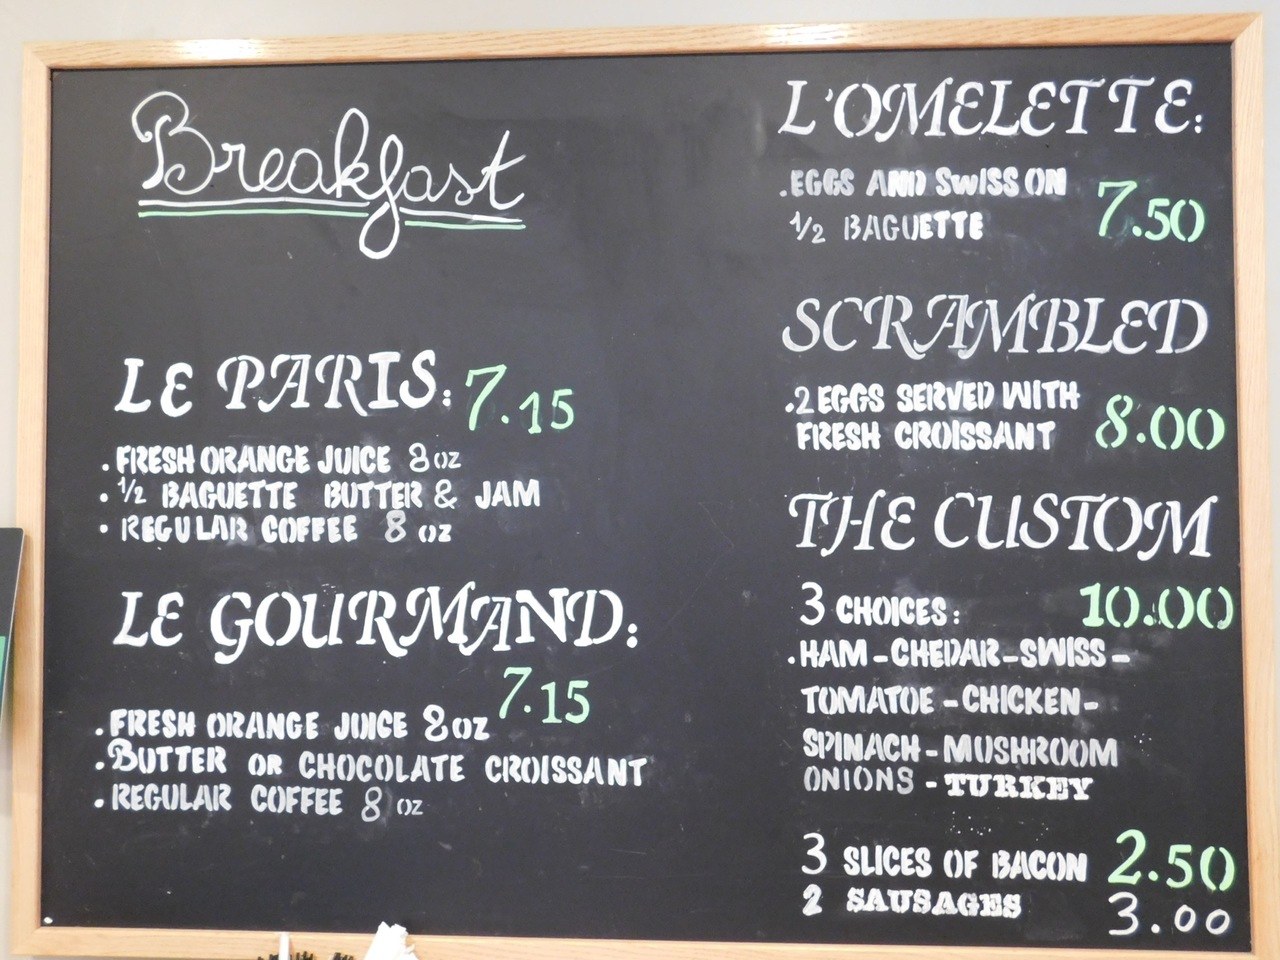 Breakfast
LE PARIS: 7.15
. FRESH ORANGE JUICE 8 oz
. 1/2 BAGUETTE BUTTER & JAM
. REGULAR COFFEE 8 oz
LE GOURMAND:
7.15
. FRESH ORANGE JUICE 8 oz
. BUTTER OR CHOCOLATE CROISSANT
. REGULAR COFFEE 8 oz
L'OMELETTE:
. EGGS AND SWISS ON
1/2 BAGUETTE 7.50
SCRAMBLED
. 2 EGGS SERVED WITH
FRESH CROISSANT 8.00
THE CUSTOM
3 CHOICES: 10.00
. HAM - CHEDAR - SWISS -
TOMATOE - CHICKEN -
SPINACH - MUSHROOM
ONIONS - TURKEY
3 SLICES OF BACON 2.50
2 SAUSAGES 3.00